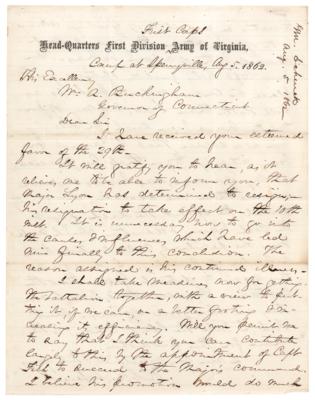 First Corps
Head-Quarters First Division Army of Virginia,
Camp at Sperryville, Aug 5. 1862.
His Excellency
Wm. A. Buckingham
Governor of Connecticut
Dear Sir
I have received your esteemed
favor of the 29th.
It will gratify you to hear, as it
relieves me to be able to inform you, that
Major Lyon has determined to resign,
his resignation to take effect on the 10th
inst. It is unnecessary now to go into
the causes & influences which have led
him finally to this conclusion. The
reason assigned is his continued illness.
I shall take measures now for getting
the battalion together, with a view to put
ting it, if we can, on a better footing & in-
creasing its efficiency. Will you permit me
to say that I think you can contribute
largely to this, by the appointment of Capt
to succeed to the Major's command.
I believe his promotion would do much
Aug. 5 1862